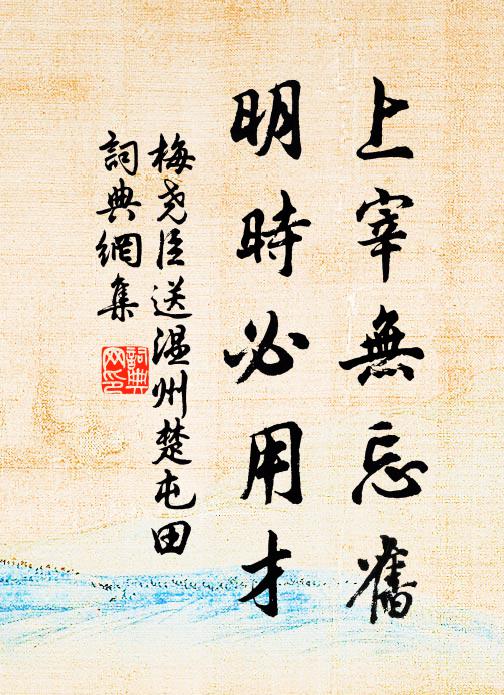 上宰無忘舊
明時必用才
梅堯臣送温州楚屯田
詞典網集
詞典
网印